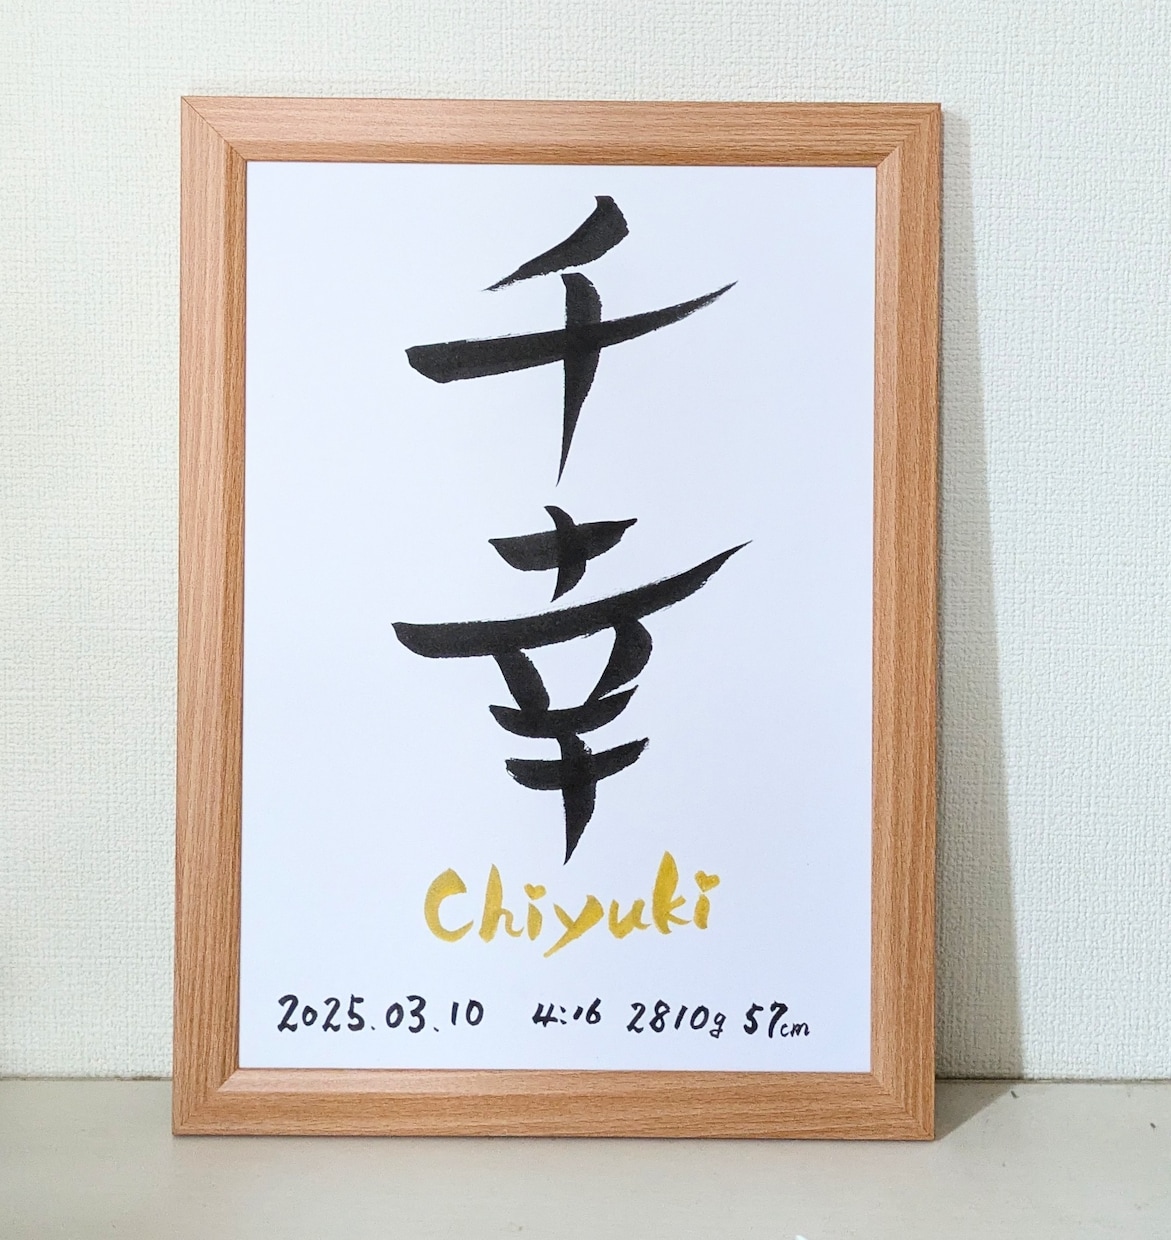 千幸
Chiyuki
2025.03.10 4:16 2810g 57cm